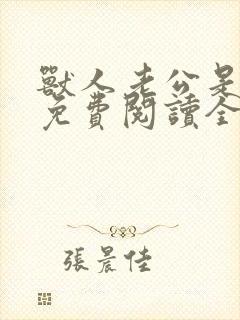 獸人老公是
免費閱讀全
張晨佳